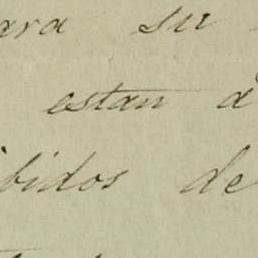 ara su
estan a
ibidos de